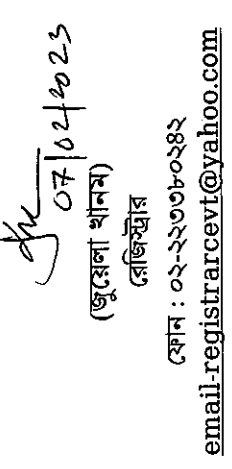 07/02/2023
(জুয়েলা খানম)
রেজিস্ট্রার
ফোন : ০২-২২৩৩৮০২৪২
email-registrarcevt@yahoo.com